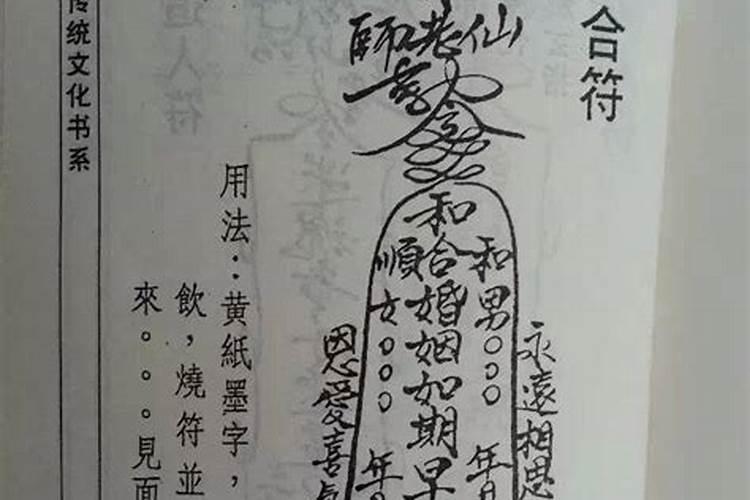 合符
師老仙
永遠相思
和男○○○ 年月
和合婚姻如期早
順女○○○ 年
恩愛喜氣
用法：黄紙墨字，
飲，燒符並
來。。。見面
传统文化书系